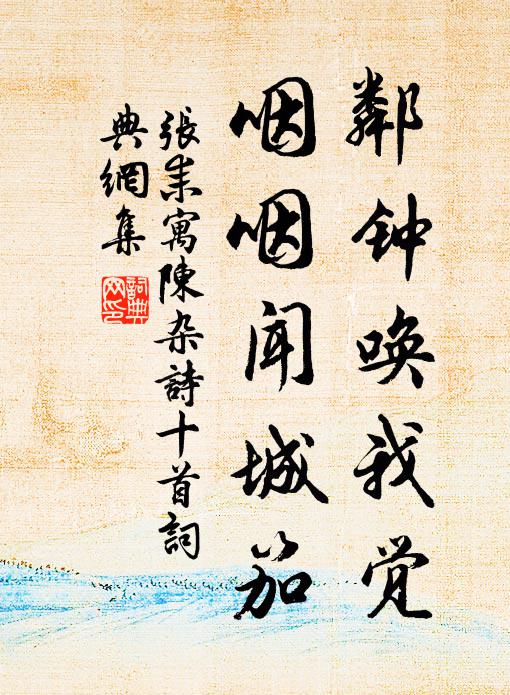 鄰钟唤我觉
咽咽闻城笳
張耒寓陳杂詩十首詞
典網集
詞典网印